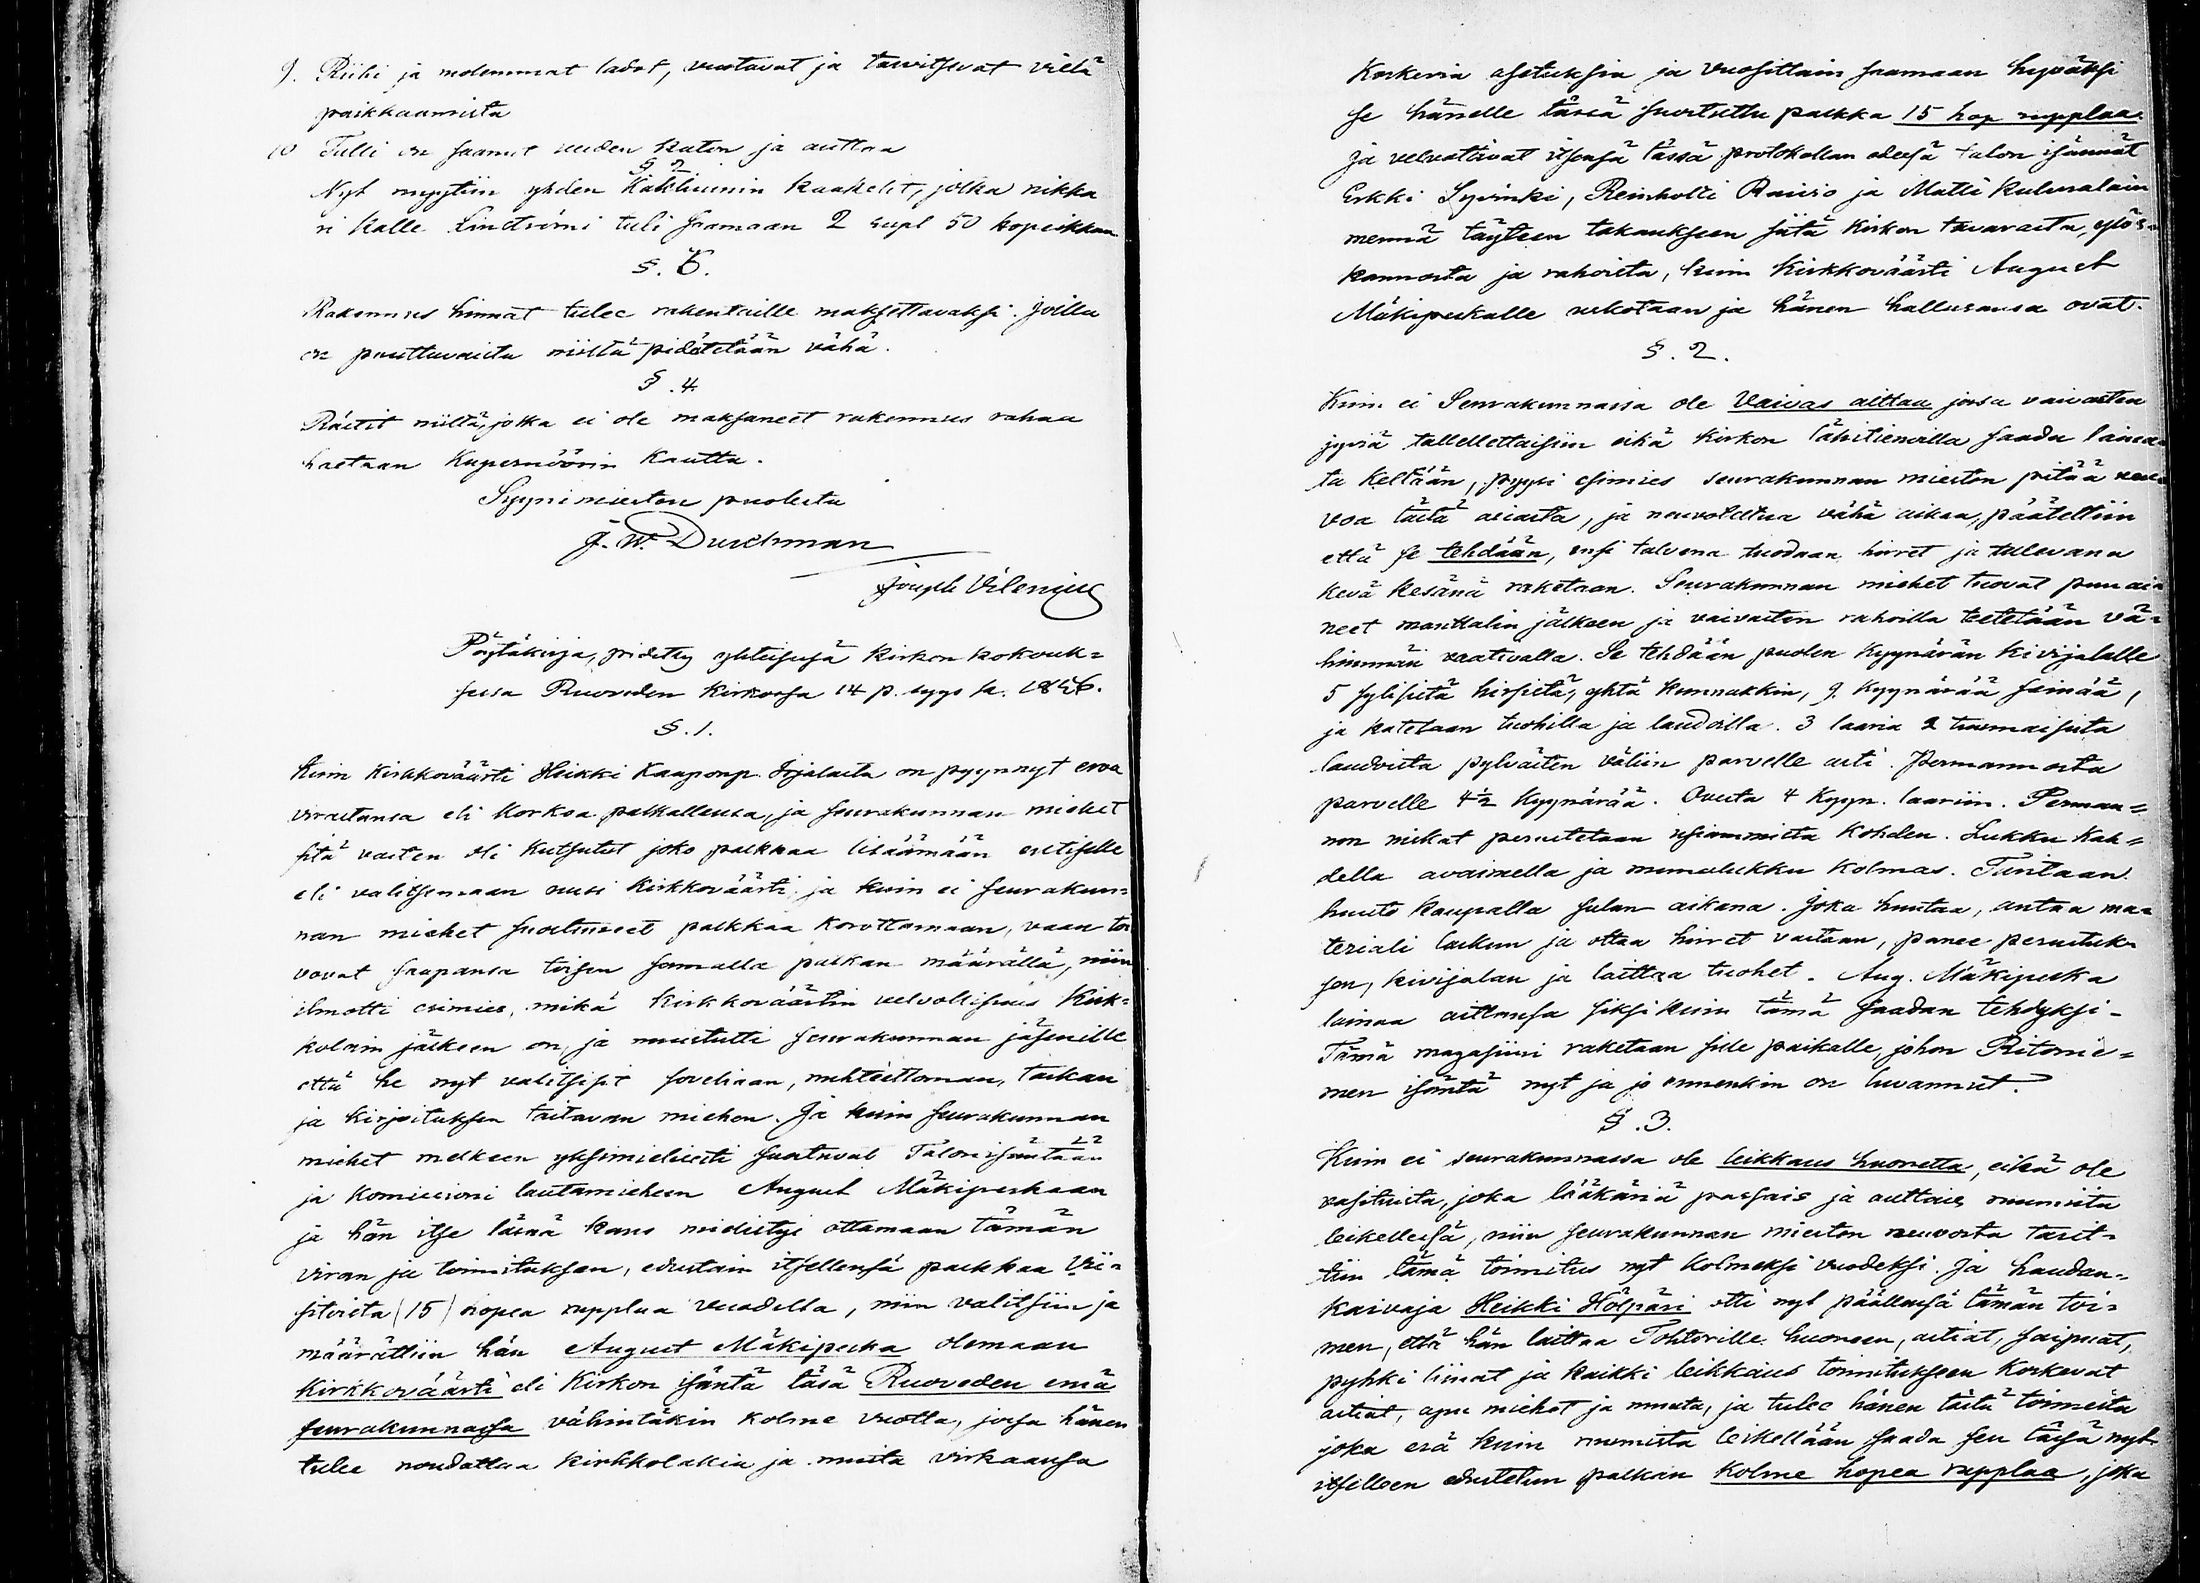 9. Riihi ja molemmat ladot, vuotavat ja tarvitsevat vielä
paikkaamista
10 Tulli on saanut uuden katon ja auttaa
§ 2
Nyt myytiin yhden Kakluunin kaakelit, jotka nikka
ri Kalle Lindströmi tuli saamaan 2 rupl 50 kopeikkaa
§. 3.
Rakennus hinnat tulee rakentaille maksettavaksi. Joilla
on puuttuvaista niiltä pidätetään vähä.
§ .4.
Rästit niiltä, jotka ei ole maksaneet rakennus rahaa
haetaan Kupernöörin kautta.
Syynimiesten puolesta
J. W. Durchman
Joseph Vilenius
Pöytäkirja, pidetty yhteisesä kirkon kokouk=
sessa Ruoveden kirkossa 14 p. syys k. 1856.
§. 1.
Kuin kirkkoväärti Heikki Kaaponp. Jäjälästa on pyynnyt eroa
virastansa eli korkoa palkallensa, ja seurakunnan miehet
sitä vasten oli kutsutut joko palkkaa lisäämään entiselle
eli valitsemaan uusi kirkkoväärti, ja kuin ei seurakun=
nan miehet suostuneet palkkaa korottamaan, vaan toi
vovat saapansa toisen samalla palkan määrällä, niin
ilmotti esimies, mikä kirkkoväärtin velvollisuus Kirk=
kolain jälkeen on, ja muistutti seurakunnan jäsenille
että he nyt valitsisit soveliaan, nuhteettoman, taikan
ja kirjoituksen taitavan miehen. Ja kuin seurakunnan
miehet melkeen yksimielisesti suostuvat Talon isäntään
ja komissioni lautamieheen August Mäkipeskaan
ja hän itse läsnä kans midistyi ottamaan tämän
viran ja toimituksen, edustain itsellensä palkkaa Vii=
sitoista (15) hopea rupplaa vuodella, niin valitsiin ja
määrättiin hän August Mäkipeska olemaan
kirkkoväärti eli Kirkon isäntä täsä Ruoveden emä
seurakunnassa vähintäkin kolme vuotta, jossa hänen
tulee noudattaa kirkkolakia ja muita virkaansa
Koskevia asetuksia ja vuosittain saamaan hyväksi
se hänelle täsä suostuttu palkka 15 hop rupplaa.
Ja velvotavat itsensä tässä protokollan edessä talon isännät
Erkki Syvinki, Reinholti Rauvio ja Matti Kulmalain
mennä täyteen takaukseen siitä kirkon tavaraita, ylös=
kannosta ja rahoista, kuin Kirkkoväärti August
Mäkipeskalle uskotaan ja hänen hallusansa ovat.
§. 2.
Kuin ei Seurakunnassa ole Vaivas aittaa jossa vaivasten
jyviä tallellettaisiin eikä kirkon lähitienoilla saada lainaa
ta keltään, pyysi esimies seurakunnan miesten pitää neu
voa tästä asiasta, ja neuvoteltua vähä aikaa, päätettiin
että se tehdään, ensi talvena tuodaan hirret ja tulevana
kevä kesänä raketaan. Seurakunnan miehet tuovat puu ai
neet manttalin jälkeen ja vaivasten rahoilla teetetään vä=
himmän vaativalla. Se tehdään puolen kyynärän kivijalalle
5 sylisistä hirsistä, yhtä kunnakkin, 9. kyynärää seinää,
ja katetaan tuohilla ja laudoilla. 3 laaria 2 tuumaisista
laudoista pylväiten väliin parvelle asti. Permannosta
parvelle 4½ kyynärää. Ovesta 4 kyyn. laariin. Perman=
non niskat perustetaan kohden. Lukku kah=
della avaimella ja mumalukku kolmas. Tuntaan
huuto kaupalla sulan aikana. Joka huutaa, antaa ma=
teriali laskun ja ottaa hirret vastaan, panee perustuk=
sen, kivijalan ja laittaa tuohet. Aug. Mäkipeska
lainaa aittansa siksi kuin tämä saadan tehdyksi -
Tämä magasiini raketaan sille paikalle, johon Ritonie=
men isäntä nyt ja jo ennenkin on luvannut.
§ .3.
Kuin ei seurakunnassa ole leikkaus huonetta, eikä ole
vasituista, joka lääkäriä passais ja auttais ruumita
leikellessä, niin seurakunnan miesten neuvosta tarit=
tiin tämä toimitus nyt kolmeksi vuodeksi. Ja haudan=
kaivaja Heikki Hölpäri otti nyt päällensä tämän toi=
men, että hän laittaa Tohtorille huoneen, astiat, saipuat,
pyhki liinat ja kaikki leikkaus toimitukseen koskevat
astiat, apu miehet ja muuta, ja tulee hänen tästä toimesta
joka erä kuin ruumista leikellään saada sen tässä nyt
itselleen edustetun palkan kolme hopea rupplaa, joka